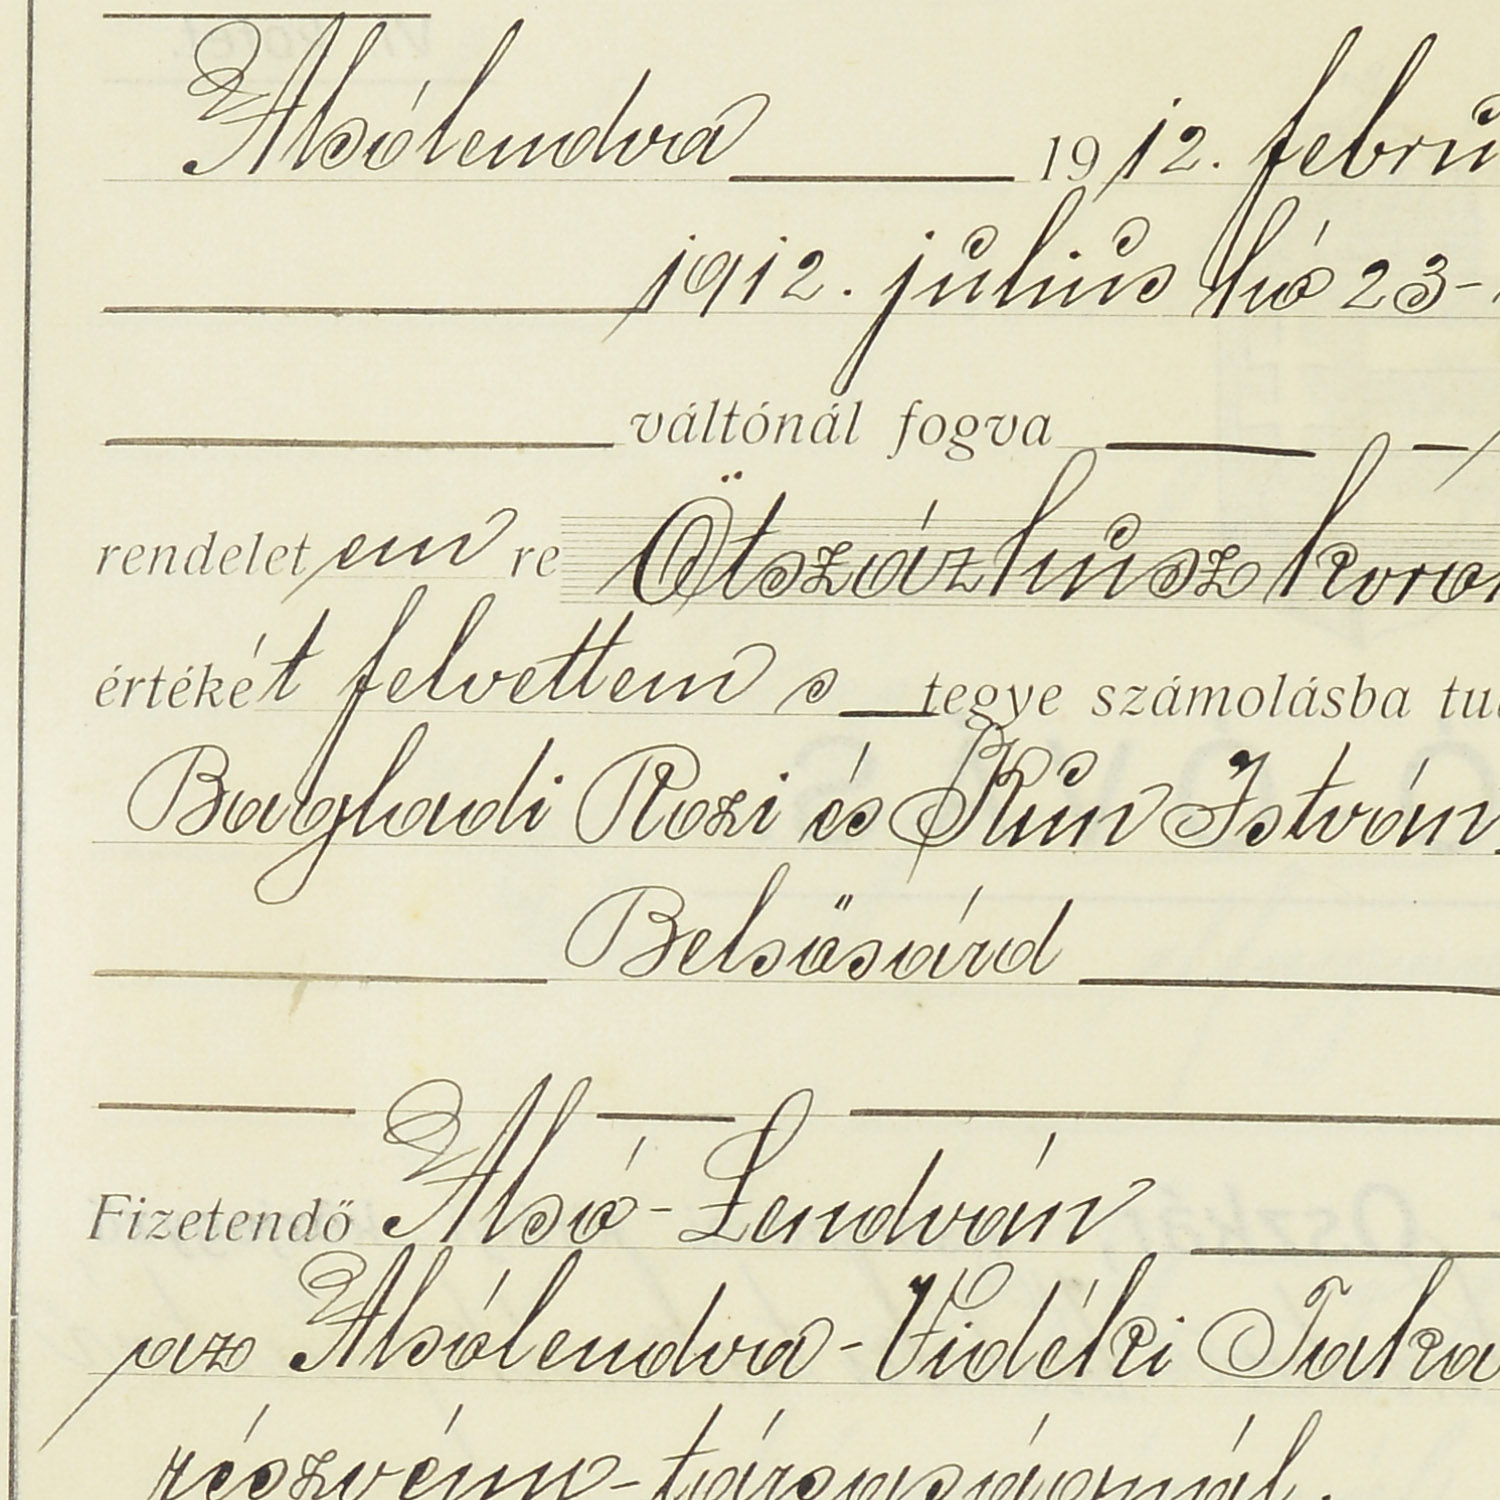 Alsólendva 1912. febru
1912. július hó 23-
váltónál fogva
rendeletem re Ötszázhúsz koron
értékét felvettem s tegye számolásba tu
Baghadi Rozi és Kún István
Belsősárd
Fizetendő Alsó-Lendván
az Alsólendva-Vidéki Taka
részvény-társaságnál.